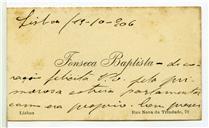 Lisboa 19-10-906
Fonseca Baptista - de co-
ração felicita V. Ex. pela pri-
morosa estreia parlamentar
com era proprio. Com
Lisboa
Rua Nova da Trindade, 71